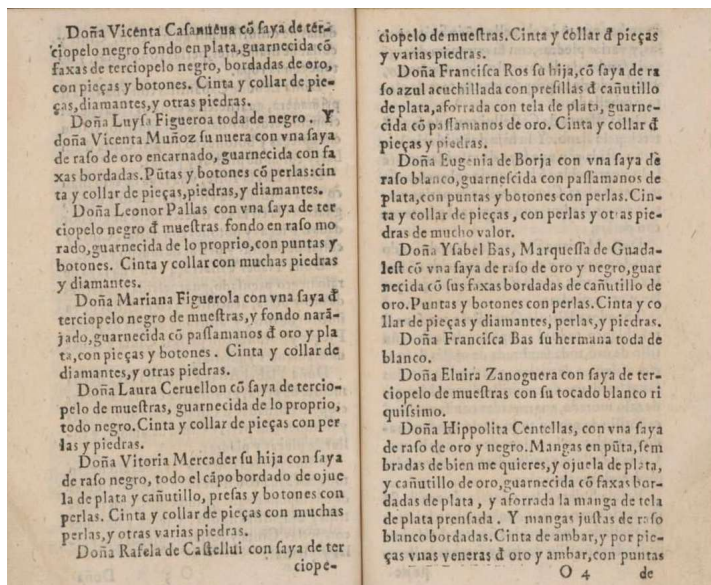 Doña Vicenta Casanueua cõ saya de ter-
ciopelo negro fondo en plata,guarnecida cõ
faxas de terciopelo negro, bordadas de oro,
con pieças y botones. Cinta y collar de pie-
ças,diamantes,y otras piedras.
Doña Luysa Figueroa toda de negro. Y
doña Vicenta Muñoz su nuera con vna saya
de raso de oro encarnado, guarnecida con fa
xas bordadas.Pũtas y botones cõ perlas:cin
ta y collar de pieças,piedras,y diamantes.
Doña Leonor Pallas con vna saya de ter
ciopelo negro đ muestras fondo en raso mo
rado,guarnecida de lo proprio,con puntas y
botones. Cinta y collar con muchas piedras
y diamantes.
Doña Mariana Figuerola con vna saya đ
terciopelo negro de muestras,y fondo narã-
jado,guarnecida cõ passamanos đ oro y pla
ta,con pieças y botones. Cinta y collar de
diamantes,y otras piedras.
Doña Laura Ceruellon cõ saya de tercio-
pelo de muestras, guarnecida de lo proprio,
todo negro.Cinta y collar de pieças con per
las y piedras.
Doña Vitoria Mercader su hija con saya
de raso negro, todo el cãpo bordado de ojue
la de plata y cañutillo, presas y botones con
perlas. Cinta y collar de pieças con muchas
perlas,y otras varias piedras.
Doña Rafela de Castellui con saya de ter
ciope-
ciopelo de muestras.Cinta y collar đ pieças
y varias piedras.
Doña Francisca Ros su hija,cõ saya de ra
so azul acuchillada con presillas đ cañutillo
de plata,aforrada con tela de plata, guarne-
cida cõ passamanos de oro. Cinta y collar đ
pieças y piedras.
Doña Eugenia de Borja con vna saya de
raso blanco,guarnescida con passamanos de
plata,con puntas y botones con perlas.Cin-
ta y collar de pieças, con perlas y otras pie-
dras de mucho valor.
Doña Ysabel Bas, Marquessa de Guada-
lest cõ vna saya de raso de oro y negro,guar
necida cõ sus faxas bordadas de cañutillo de
oro.Puntas y botones con perlas.Cinta y co
llar de pieças y diamantes, perlas,y piedras.
Doña Francisca Bas su hermana toda de
blanco.
Doña Eluira Zanoguera con saya de ter-
ciopelo de muestras con su tocado blanco ri
quissimo.
Doña Hippolita Centellas, con vna saya
de raso de oro y negro.Mangas en pũta,sem
bradas de bien me quieres,y ojuela de plata,
y cañutillo de oro,guarnecida cõ faxas bor-
dadas de plata, y aforrada la manga de tela
de plata prensada. Y mangas justas de raso
blanco bordadas.Cinta de ambar,y por pie-
ças vnas veneras đ oro y ambar,con puntas
O 4 de